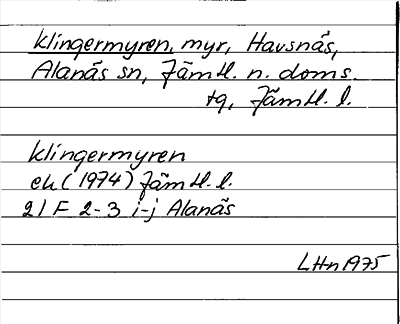 Klingermyren, myr, Havsnäs,
Alanäs sn, Jämtl. n. doms.
tg, Jämtl. l.
Klingermyren
ek (1974) Jämtl. l.
21 F 2-3 i-j Alanäs
LHn 1975